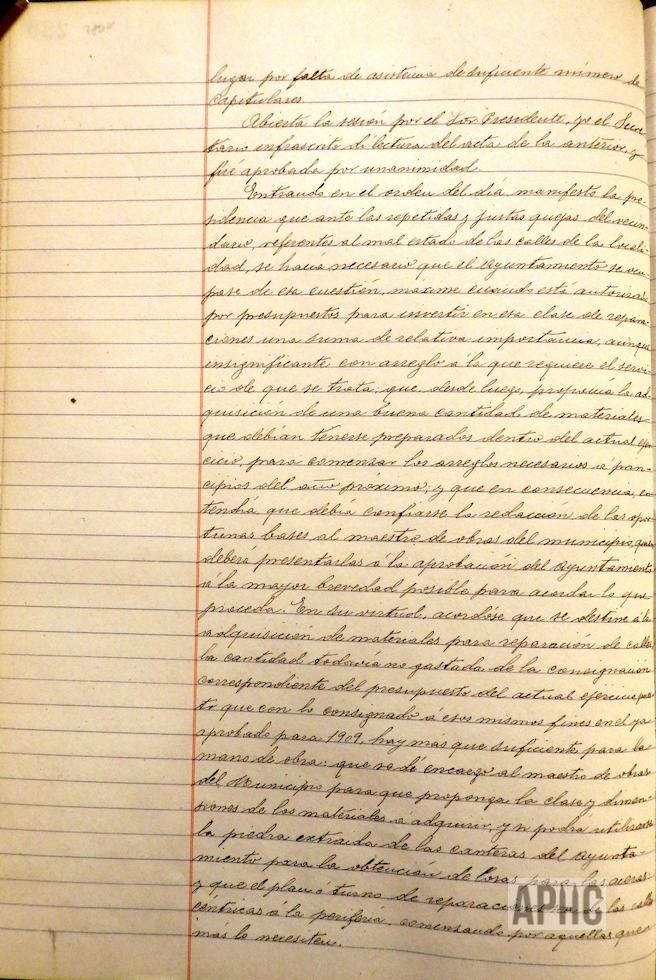 lugar por falta de asistencia de suficiente número de
capitulares.
Abierta la sesión por el Sor. Presidente, yo el Secre-
tario infrascrito dí lectura del acta de la anterior, y
fué aprobada por unanimidad.
Entrando en el orden del día, manifestó la pre-
sidencia que ante las repetidas y justas quejas del vecin-
dario, referentes al mal estado de las calles de la locali-
dad, se hacía necesario que el Ayuntamiento se ocu-
pase de esa cuestión, máxime cuando está autorizado
por presupuestos para invertir en esa clase de repara-
ciones una suma de relativa importancia, aunque
insignificante con arreglo á la que requiere el servi-
cio de que se trata; que, desde luego, proponía la ad-
quisición de una buena cantidad de materiales
que debían tenerse preparados dentro del actual ejer-
cicio, para comenzar los arreglos necesarios á prin-
cipios del año próximo; y que en consecuencia, en-
tendía que debía confiarse la redacción de las opor-
tunas bases al maestro de obras del municipio, quien
deberá presentarlas á la aprobación del Ayuntamiento
á la mayor brevedad posible para acordar lo que
proceda. En su virtud, acordóse que se destine á la
adquisición de materiales para reparación de calles
la cantidad todavía no gastada de la consignación
correspondiente del presupuesto del actual ejercicio, pues-
to que con lo consignado á esos mismos fines en el ya
aprobado para 1909, hay más que suficiente para la
mano de obra: que se dé encargo al maestro de obras
del Municipio para que proponga la clase y dimen-
siones de los materiales á adquirir, y si podrá utilizarse
la piedra extraída de las canteras del Ayunta-
miento para la obtención de losas para las aceras
y que el plan o turno de reparaciones sea de las calles
céntricas á la periferia, comenzando por aquellas que
más lo necesiten.
APHC